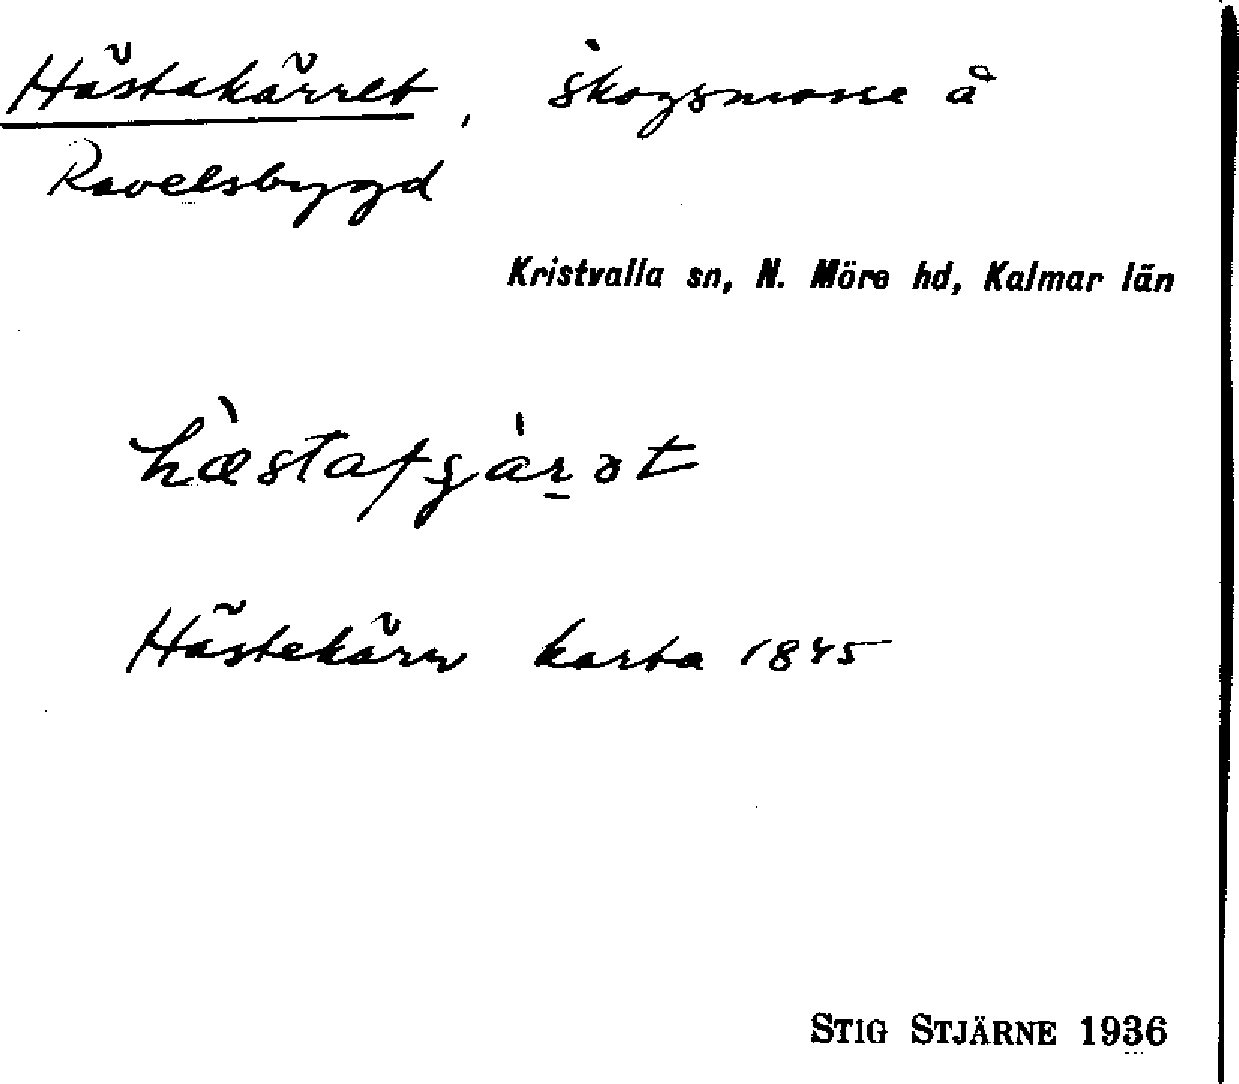 Hästakärret, skogsmosse å
Ravelsbygd
Kristvalla sn, N. Möre hd, Kalmar län
Hästekärr karta 1845
STIG STJÄRNE 1936